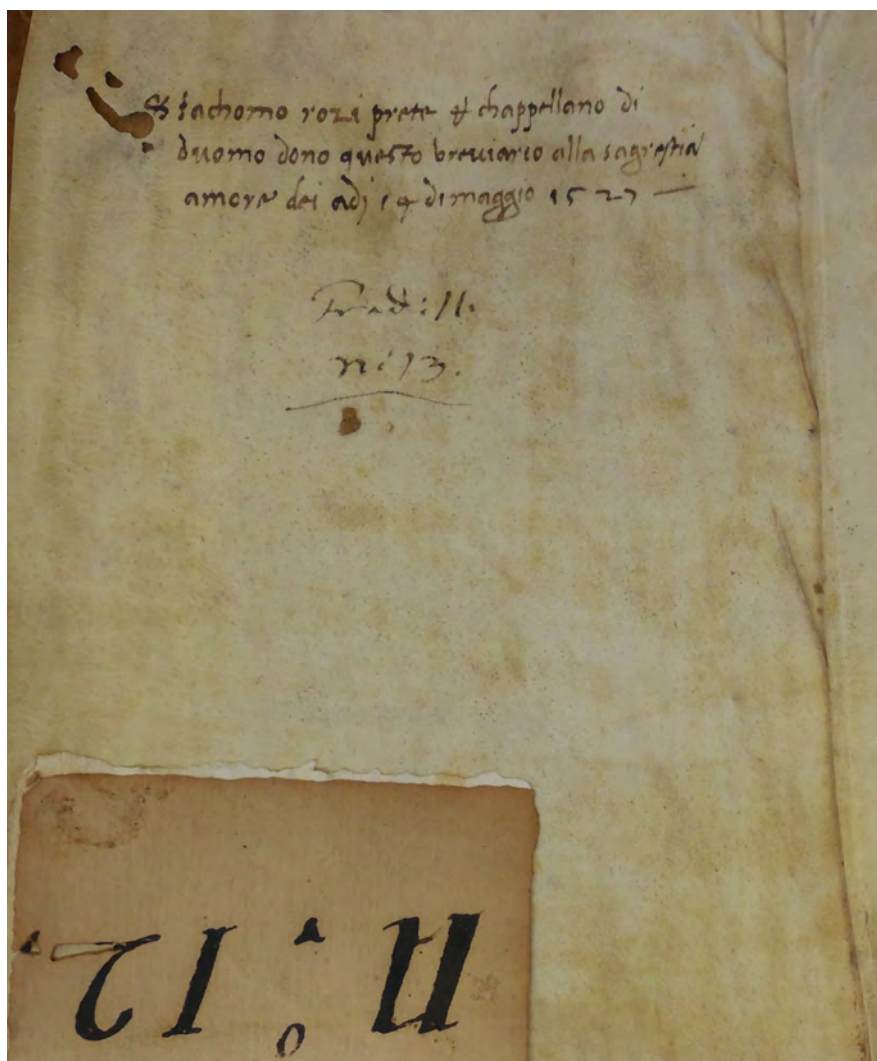 Iachomo rozi prete & chappellano di
duomo dono questo breuiario alla sagrestia
amore dei adi 14 di maggio 1527
n: 13.